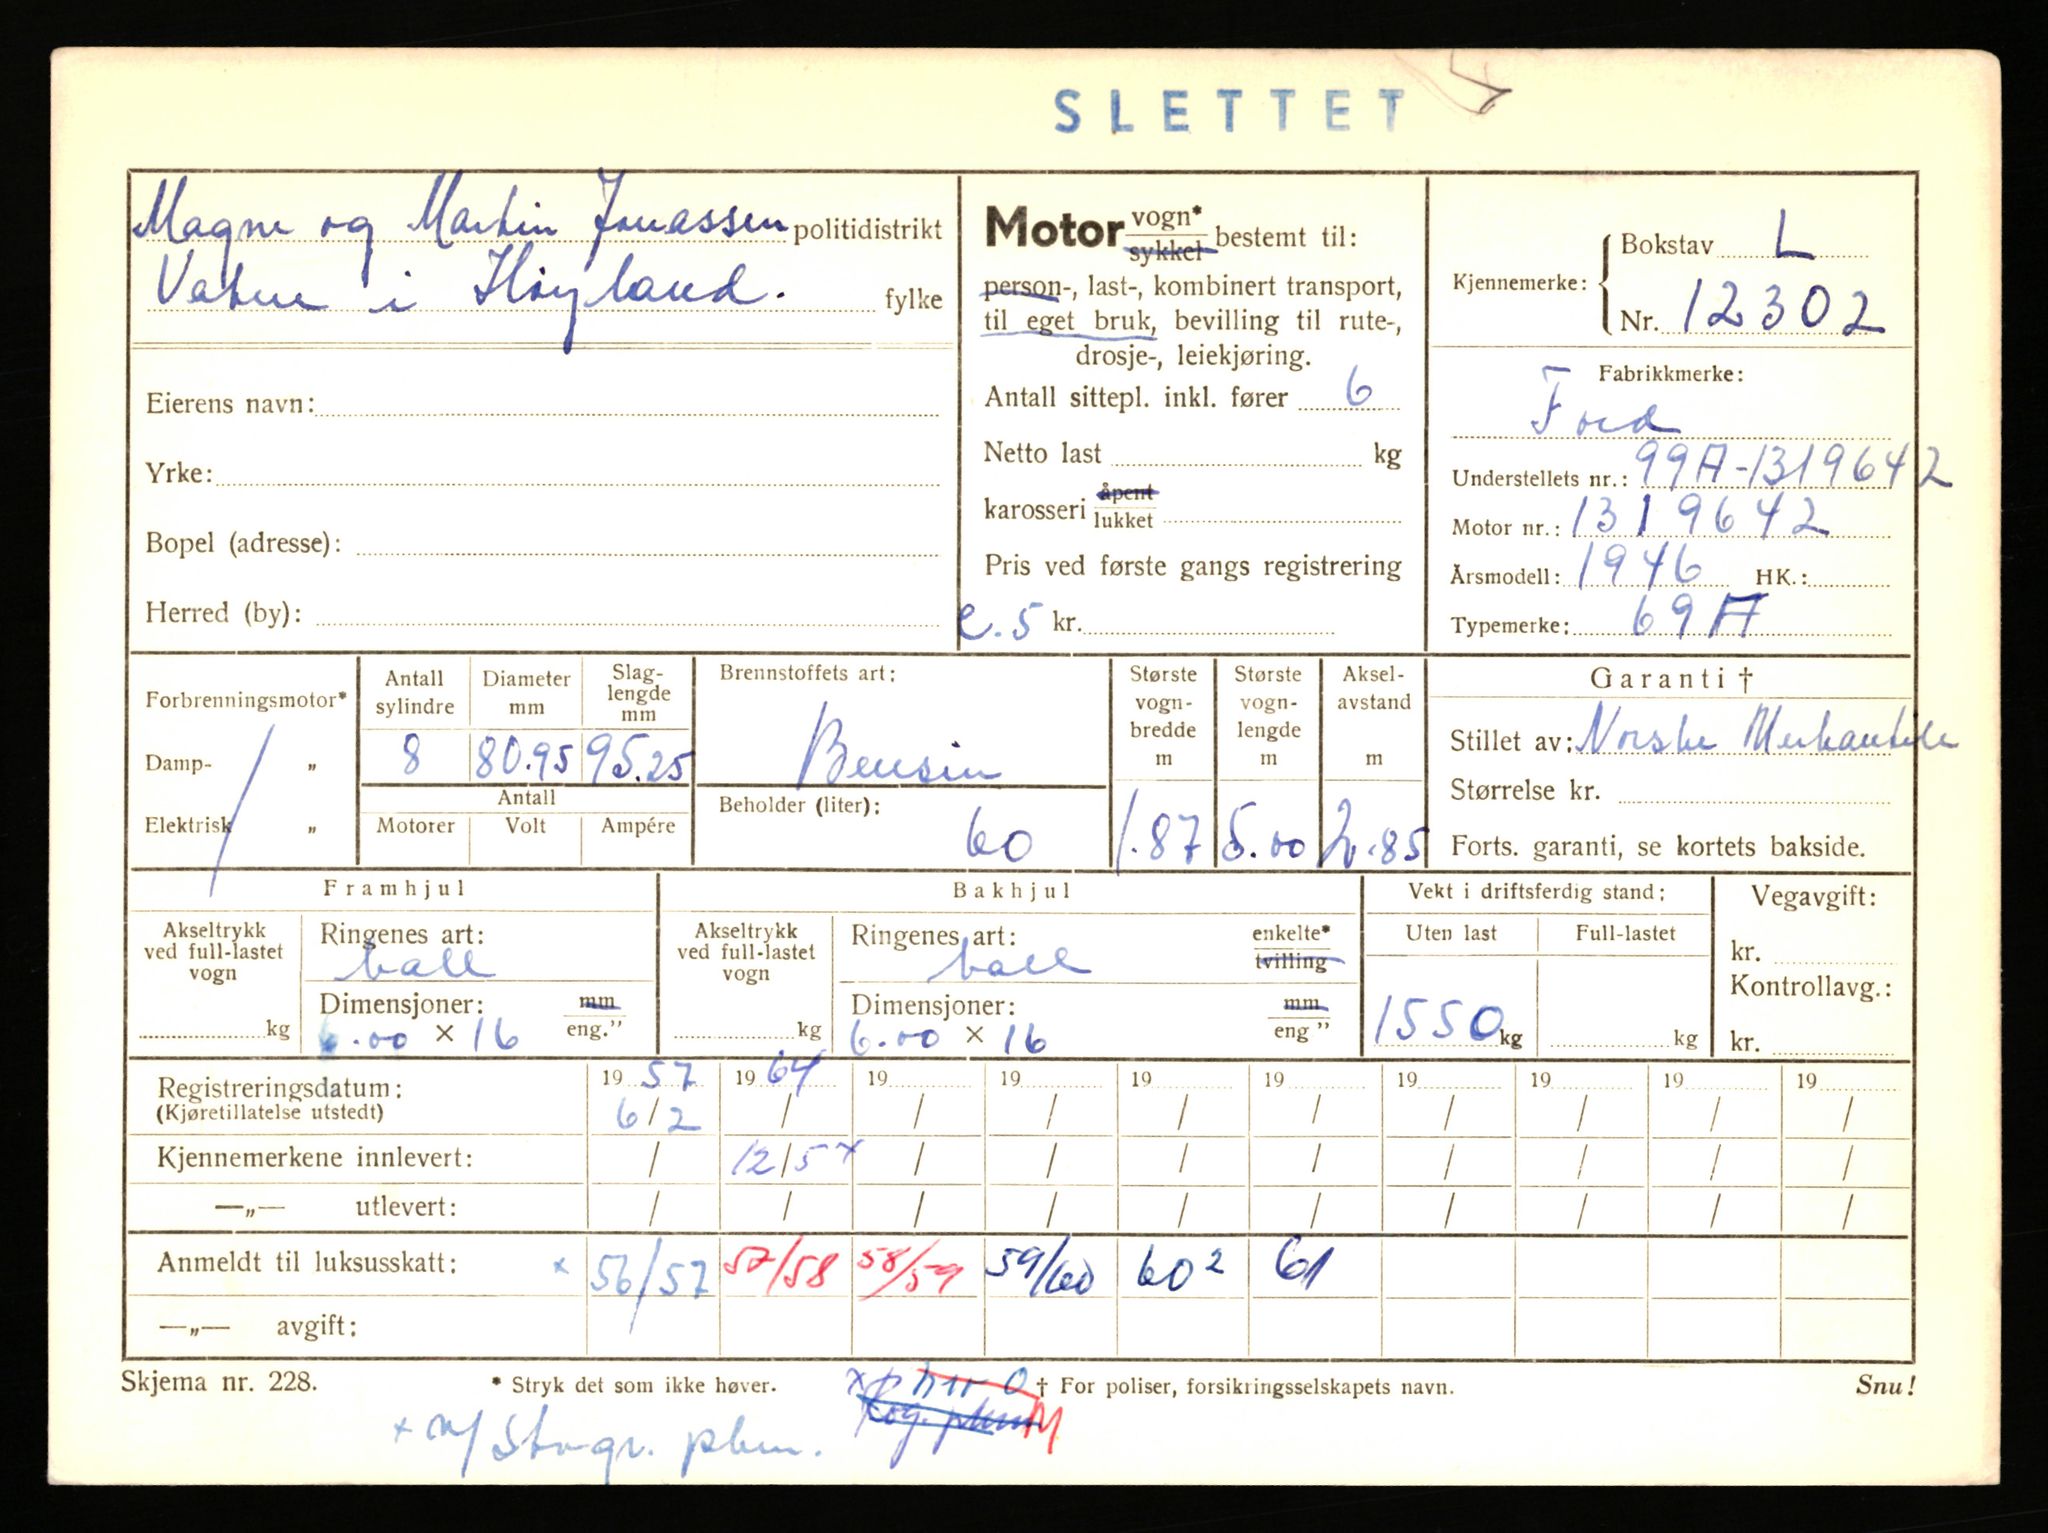 SLETTET
Magne og Martin Jonassen politidistrikt
Vatne i Høyland. fylke
Eierens navn:
Yrke:
Bopel (adresse):
Herred (by):
Motor vogn* sykkel bestemt til:
person-, last-, kombinert transport,
til eget bruk, bevilling til rute-,
drosje-, leiekjøring.
Antall sittepl. inkl. fører 6
Netto last kg
karosseri åpent lukket
Pris ved første gangs registrering
e. 5 kr.
Kjennemerke: Bokstav L
Nr. 12302
Fabrikkmerke:
Ford
Understellets nr.: 99A-1319642
Motor nr.: 1319642
Årsmodell: 1946 HK.:
Typemerke: 69A
Forbrenningsmotor*
Damp- „
Elektrisk „
Antall sylindre 8
Diameter mm 80.95
Slag-lengde mm 95.25
Antall
Motorer Volt Ampére
Brennstoffets art:
Bensin
Beholder (liter):
60
Største vogn-bredde m 1.87
Største vogn-lengde m 5.00
Aksel-avstand m 2.85
Garanti †
Stillet av: Norske Merkantile
Størrelse kr.
Forts. garanti, se kortets bakside.
Framhjul
Akseltrykk ved full-lastet vogn
kg
Ringenes art:
ball
Dimensjoner: mm
6.00 × 16 eng."
Bakhjul
Akseltrykk ved full-lastet vogn
kg
Ringenes art: enkelte*
ball tvilling
Dimensjoner: mm
6.00 × 16 eng"
Vekt i driftsferdig stand:
Uten last Full-lastet
1550 kg kg
Vegavgift:
kr.
Kontrollavg.:
kr.
Registreringsdatum: 19 57 19 64 19 19 19 19 19 19 19 19
(Kjøretillatelse utstedt) 6/2 / / / / / / / / /
Kjennemerkene innlevert: / 12/5 x / / / / / / / /
—„— utlevert: / / / / / / / / / /
Anmeldt til luksusskatt: x 56/57 57/58 58/59 59/60 60² 61
—„— avgift:
Skjema nr. 228. * Stryk det som ikke høver. † For poliser, forsikringsselskapets navn. Snu!